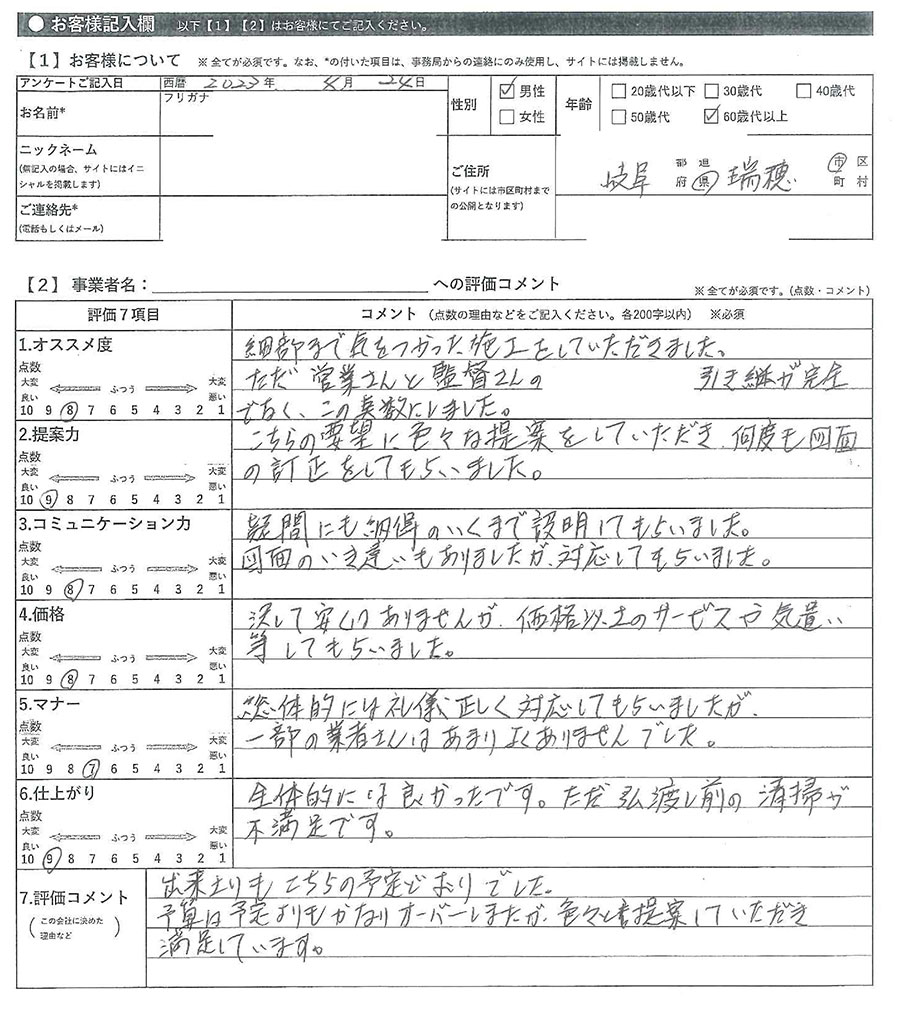 ● お客様記入欄 以下【1】【2】はお客様にてご記入ください。
【1】お客様について ※ 全てが必須です。なお、*の付いた項目は、事務局からの連絡にのみ使用し、サイトには掲載しません。
アンケートご記入日 西暦 2023年 4月 24日
お名前* フリガナ
性別 ☑男性 □女性
年齢 □20歳代以下 □30歳代 □40歳代
□50歳代 ☑60歳代以上
ニックネーム
(無記入の場合、サイトにはイニ
シャルを掲載します)
ご連絡先*
(電話もしくはメール)
ご住所
(サイトには市区町村まで
の公開となります)
岐阜 都 道 府 県 瑞穂 市 区 町 村
【2】事業者名: への評価コメント ※ 全てが必須です。(点数・コメント)
評価7項目 コメント (点数の理由などをご記入ください。各200字以内) ※必須
1.オススメ度
点数
大変 ふつう 大変
良い 悪い
10 9 8 7 6 5 4 3 2 1
細部まで気をつかった施工をしていただきました。
ただ営業さんと監督さんの 引き継が完全
でなく、この点数にしました。
2.提案力
点数
大変 ふつう 大変
良い 悪い
10 9 8 7 6 5 4 3 2 1
こちらの要望に色々な提案をしていただき、何度も図面
の訂正をしてもらいました。
3.コミュニケーション力
点数
大変 ふつう 大変
良い 悪い
10 9 8 7 6 5 4 3 2 1
疑問にも納得のいくまで説明してもらいました。
図面のいき違いもありましたが、対応してもらいました。
4.価格
点数
大変 ふつう 大変
良い 悪い
10 9 8 7 6 5 4 3 2 1
決して安くありませんが、価格以上のサービスや気遣い
等してもらいました。
5.マナー
点数
大変 ふつう 大変
良い 悪い
10 9 8 7 6 5 4 3 2 1
総体的には礼儀正しく対応してもらいましたが、
一部の業者さんはあまりよくありませんでした。
6.仕上がり
点数
大変 ふつう 大変
良い 悪い
10 9 8 7 6 5 4 3 2 1
全体的には良かったです。ただ引渡し前の清掃が
不満足です。
7.評価コメント
(この会社に決めた
理由など)
出来上りもこちらの予定どおりでした。
予算は予定よりもかなりオーバーしましたが、色々と提案していただき
満足しています。